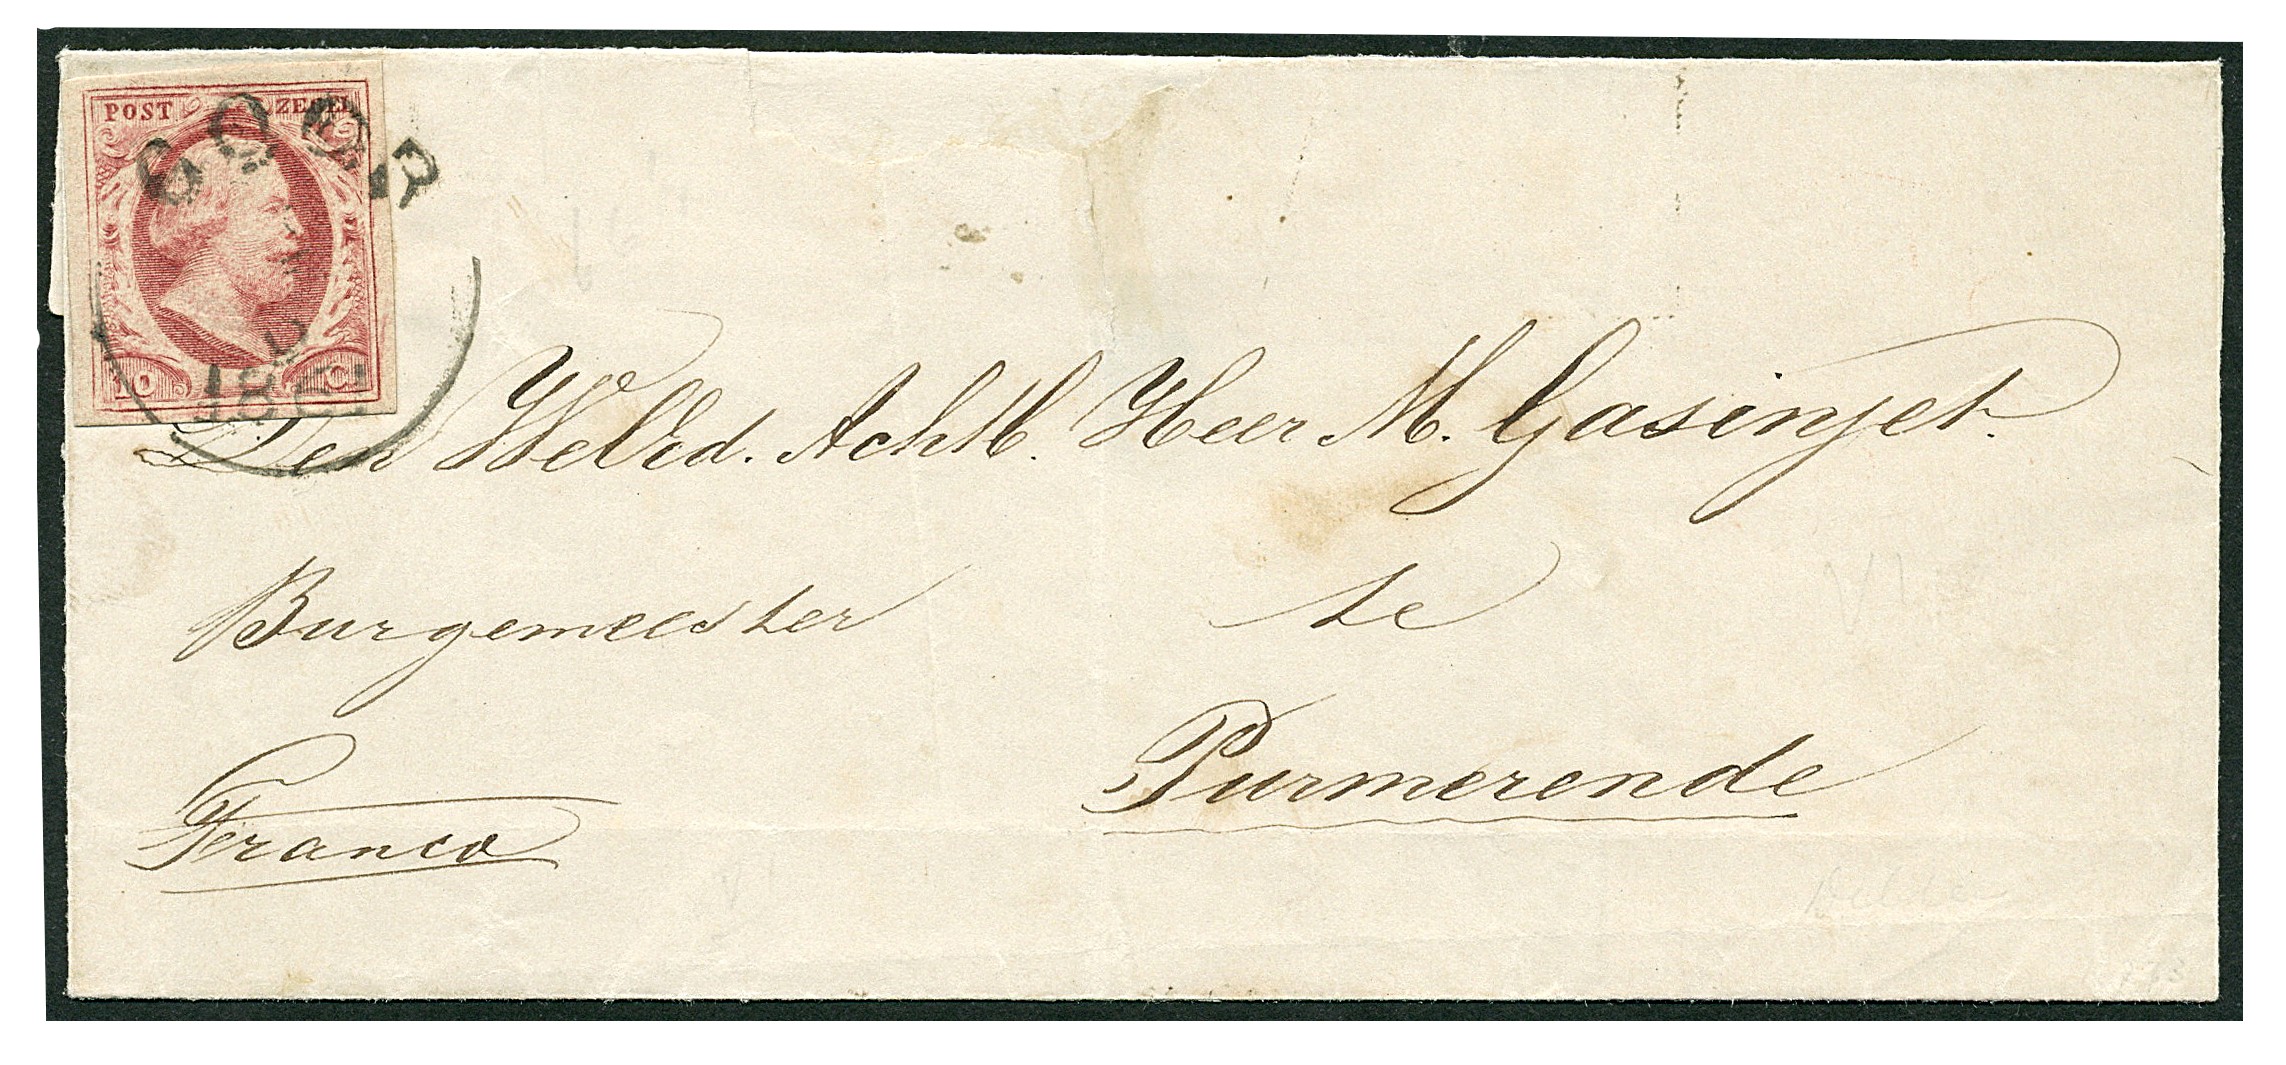 POST ZEGEL
GOOR
10 C
Den WelEd. Achtb. Heer M. Gasinjet.
Burgemeester te
Purmerende
Franco